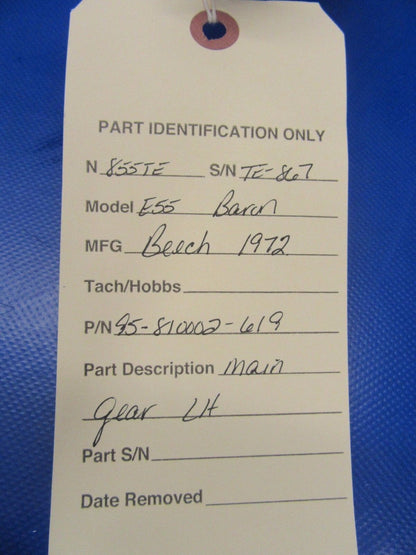 PART IDENTIFICATION ONLY
N 855TE S/N TE-867
Model E55 Baron
MFG Beech 1972
Tach/Hobbs
P/N 95-810002-619
Part Description main
gear LH
Part S/N
Date Removed